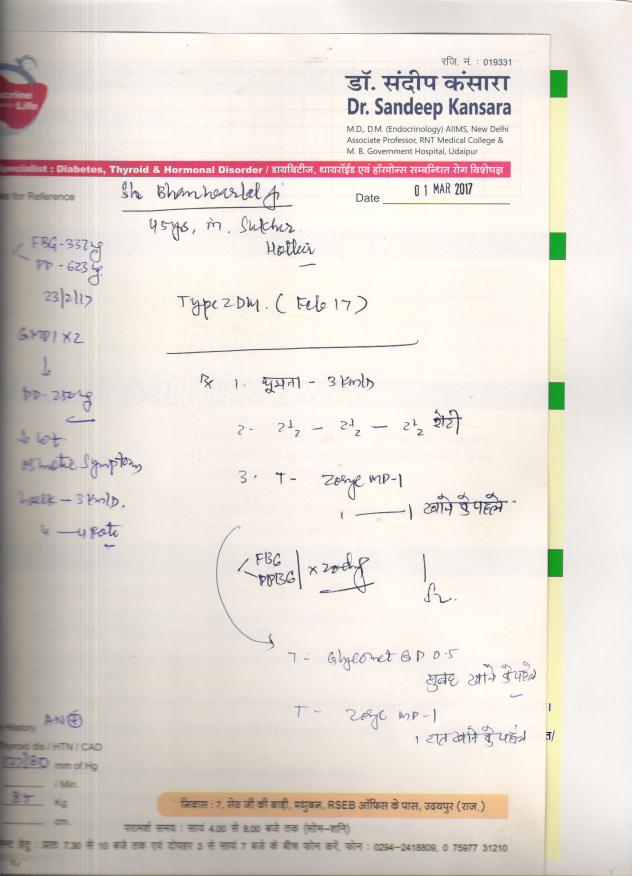 रजि. नं. : 019331
डॉ. संदीप कंसारा
Dr. Sandeep Kansara
M.D., D.M. (Endocrinology) AIIMS, New Delhi
Associate Professor, RNT Medical College &
M. B. Government Hospital, Udaipur
crine
Life
ecialist : Diabetes, Thyroid & Hormonal Disorder / डायबिटीज, थायरॉईड एवं हॉरमोन्स सम्बन्धित रोग विशेषज्ञ
es for Reference
Date 01 MAR 2017
45yrs, m.
FBG-332
PP - 623
23/2/17
Type 2 DM. ( Feb 17 )
x 2
↓
PP-250
↓ wt.
osmotic Symptoms
walk - 3 Km/D.
4 - 4 Roti
Rx 1. घूमना - 3 Km/D
2- 2½ - 2½ - 2½ रोटी
3. T- MP-1
1 ——— 1 खाने के पहले
FBG
PPBG x 200
T- Glycomet GP 0.5
सुबह खाने के पहले
T- MP-1
1 रात खाने के पहले
History AN⊕
yroid dis / HTN / CAD
/80 mm of Hg
/ Min.
85 Kg
cm.
निवास : 7, सेठ जी की बाड़ी, मधुबन, RSEB ऑफिस के पास, उदयपुर (राज.)
परामर्श समय : सायं 4.00 से 8.00 बजे तक (सोम-शनि)
हेतु : प्रातः 7.30 से 10 बजे तक एवं दोपहर 3 से सायं 7 बजे के बीच फोन करें, फोन : 0294-2418809, 0 75977 31210